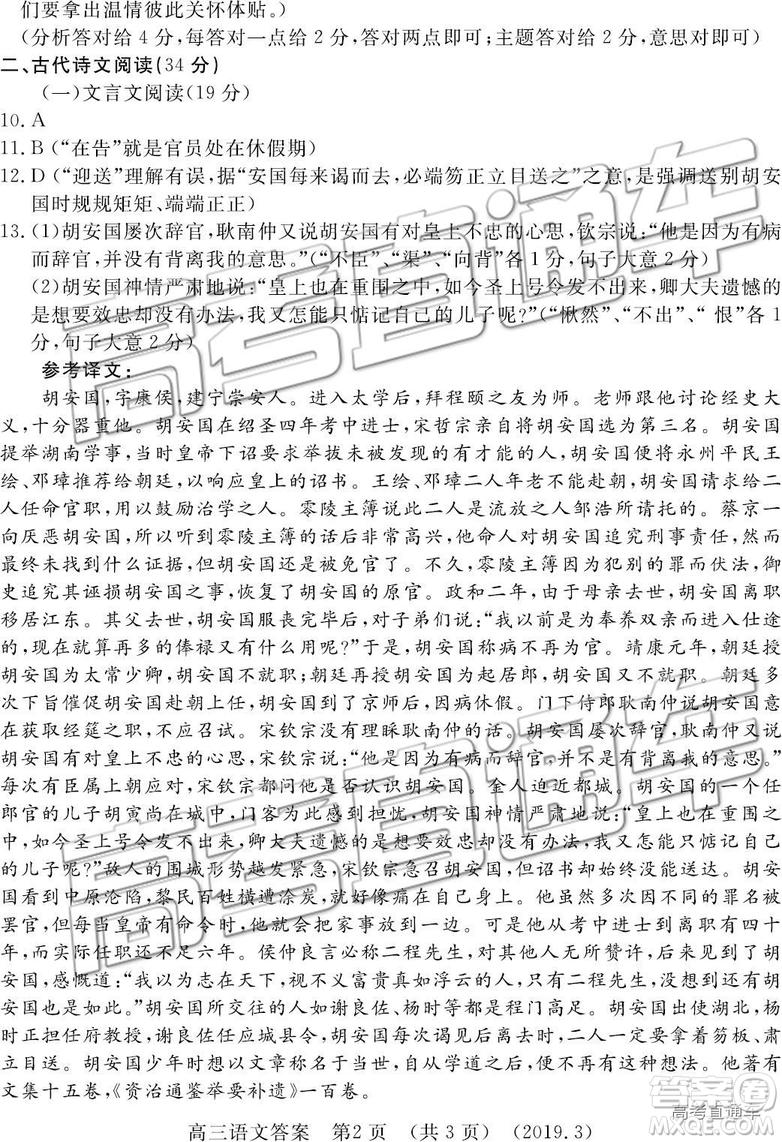 们要拿出温情彼此关怀体贴。)
(分析答对给4分,每答对一点给2分,答对两点即可;主题答对给2分,意思对即可)
二、古代诗文阅读(34分)
(一)文言文阅读(19分)
10. A
11. B(“在告”就是官员处在休假期)
12. D(“迎送”理解有误,据“安国每来谒而去,必端笏正立目送之”之意,是强调送别胡安
国时规规矩矩、端端正正)
13. (1)胡安国屡次辞官,耿南仲又说胡安国有对皇上不忠的心思,钦宗说:“他是因为有病
而辞官,并没有背离我的意思。”(“不臣”、“渠”、“向背”各1分,句子大意2分)
(2)胡安国神情严肃地说:“皇上也在重围之中,如今圣上号令发不出来,卿大夫遗憾的
是想要效忠却没有办法,我又怎能只惦记自己的儿子呢?”(“愀然”、“不出”、“恨”各1
分,句子大意2分)
参考译文:
胡安国,字康侯,建宁崇安人。进入太学后,拜程颐之友为师。老师跟他讨论经史大
义,十分器重他。胡安国在绍圣四年考中进士,宋哲宗亲自将胡安国选为第三名。胡安国
提举湖南学事,当时皇帝下诏要求举拔未被发现的有才能的人,胡安国便将永州平民王
绘、邓璋推荐给朝廷,以响应皇上的诏书。王绘、邓璋二人年老不能赴朝,胡安国请求给二
人任命官职,用以鼓励治学之人。零陵主簿说此二人是流放之人邹浩所请托的。蔡京一
向厌恶胡安国,所以听到零陵主簿的话后非常高兴,他命人对胡安国追究刑事责任,然而
最终未找到什么证据,但胡安国还是被免官了。不久,零陵主簿因为犯别的罪而伏法,御
史追究其诬损胡安国之事,恢复了胡安国的原官。政和二年,由于母亲去世,胡安国离职
移居江东。其父去世,胡安国服丧完毕后,对子弟们说:“我以前是为奉养双亲而进入仕途
的,现在就算再多的俸禄又有什么用呢?”于是,胡安国称病不再为官。靖康元年,朝廷授
胡安国为太常少卿,胡安国不就职;朝廷再授胡安国为起居郎,胡安国又不就职。朝廷多
次下旨催促胡安国赴朝上任,胡安国到了京师后,因病休假。门下侍郎耿南仲说胡安国意
在获取经筵之职,不应召试。宋钦宗没有理睬耿南仲的话。胡安国屡次辞官,耿南仲又说
胡安国有对皇上不忠的心思,宋钦宗说:“他是因为有病而辞官,并不是有背离我的意思。”
每次有臣属上朝应对,宋钦宗都问他是否认识胡安国。金人迫近都城。胡安国的一个任
郎官的儿子胡寅尚在城中,门客为此感到担忧,胡安国神情严肃地说:“皇上也在重围之
中,如今圣上号令发不出来,卿大夫遗憾的是想要效忠却没有办法,我又怎能只惦记自己
的儿子呢?”敌人的围城形势越发紧急,宋钦宗急召胡安国,但诏书却始终没能送达。胡安
国看到中原沦陷,黎民百姓横遭涂炭,就好像痛在自己身上。他虽然多次因不同的罪名被
罢官,但每当皇帝有命令时,他就会把家事放到一边。可是他从考中进士到离职有四十
年,而实际任职还不足六年。侯仲良言必称二程先生,对其他人无所赞许,后来见到了胡
安国,感慨道:“我以为志在天下,视不义富贵真如浮云的人,只有二程先生,没想到还有胡
安国也是如此。”胡安国所交往的人如谢良佐、杨时等都是程门高足。胡安国出使湖北,杨
时正担任府教授,谢良佐任应城县令,胡安国每次谒见后离去时,二人一定要拿着笏板、肃
立目送。胡安国少年时想以文章称名于当世,自从学道之后,便不再有这种想法。他著有
文集十五卷,《资治通鉴举要补遗》一百卷。
高三语文答案 第2页 (共3页) (2019.3)
高考直通车
高考直通车
高考直通车
答案圈
MXQE.COM